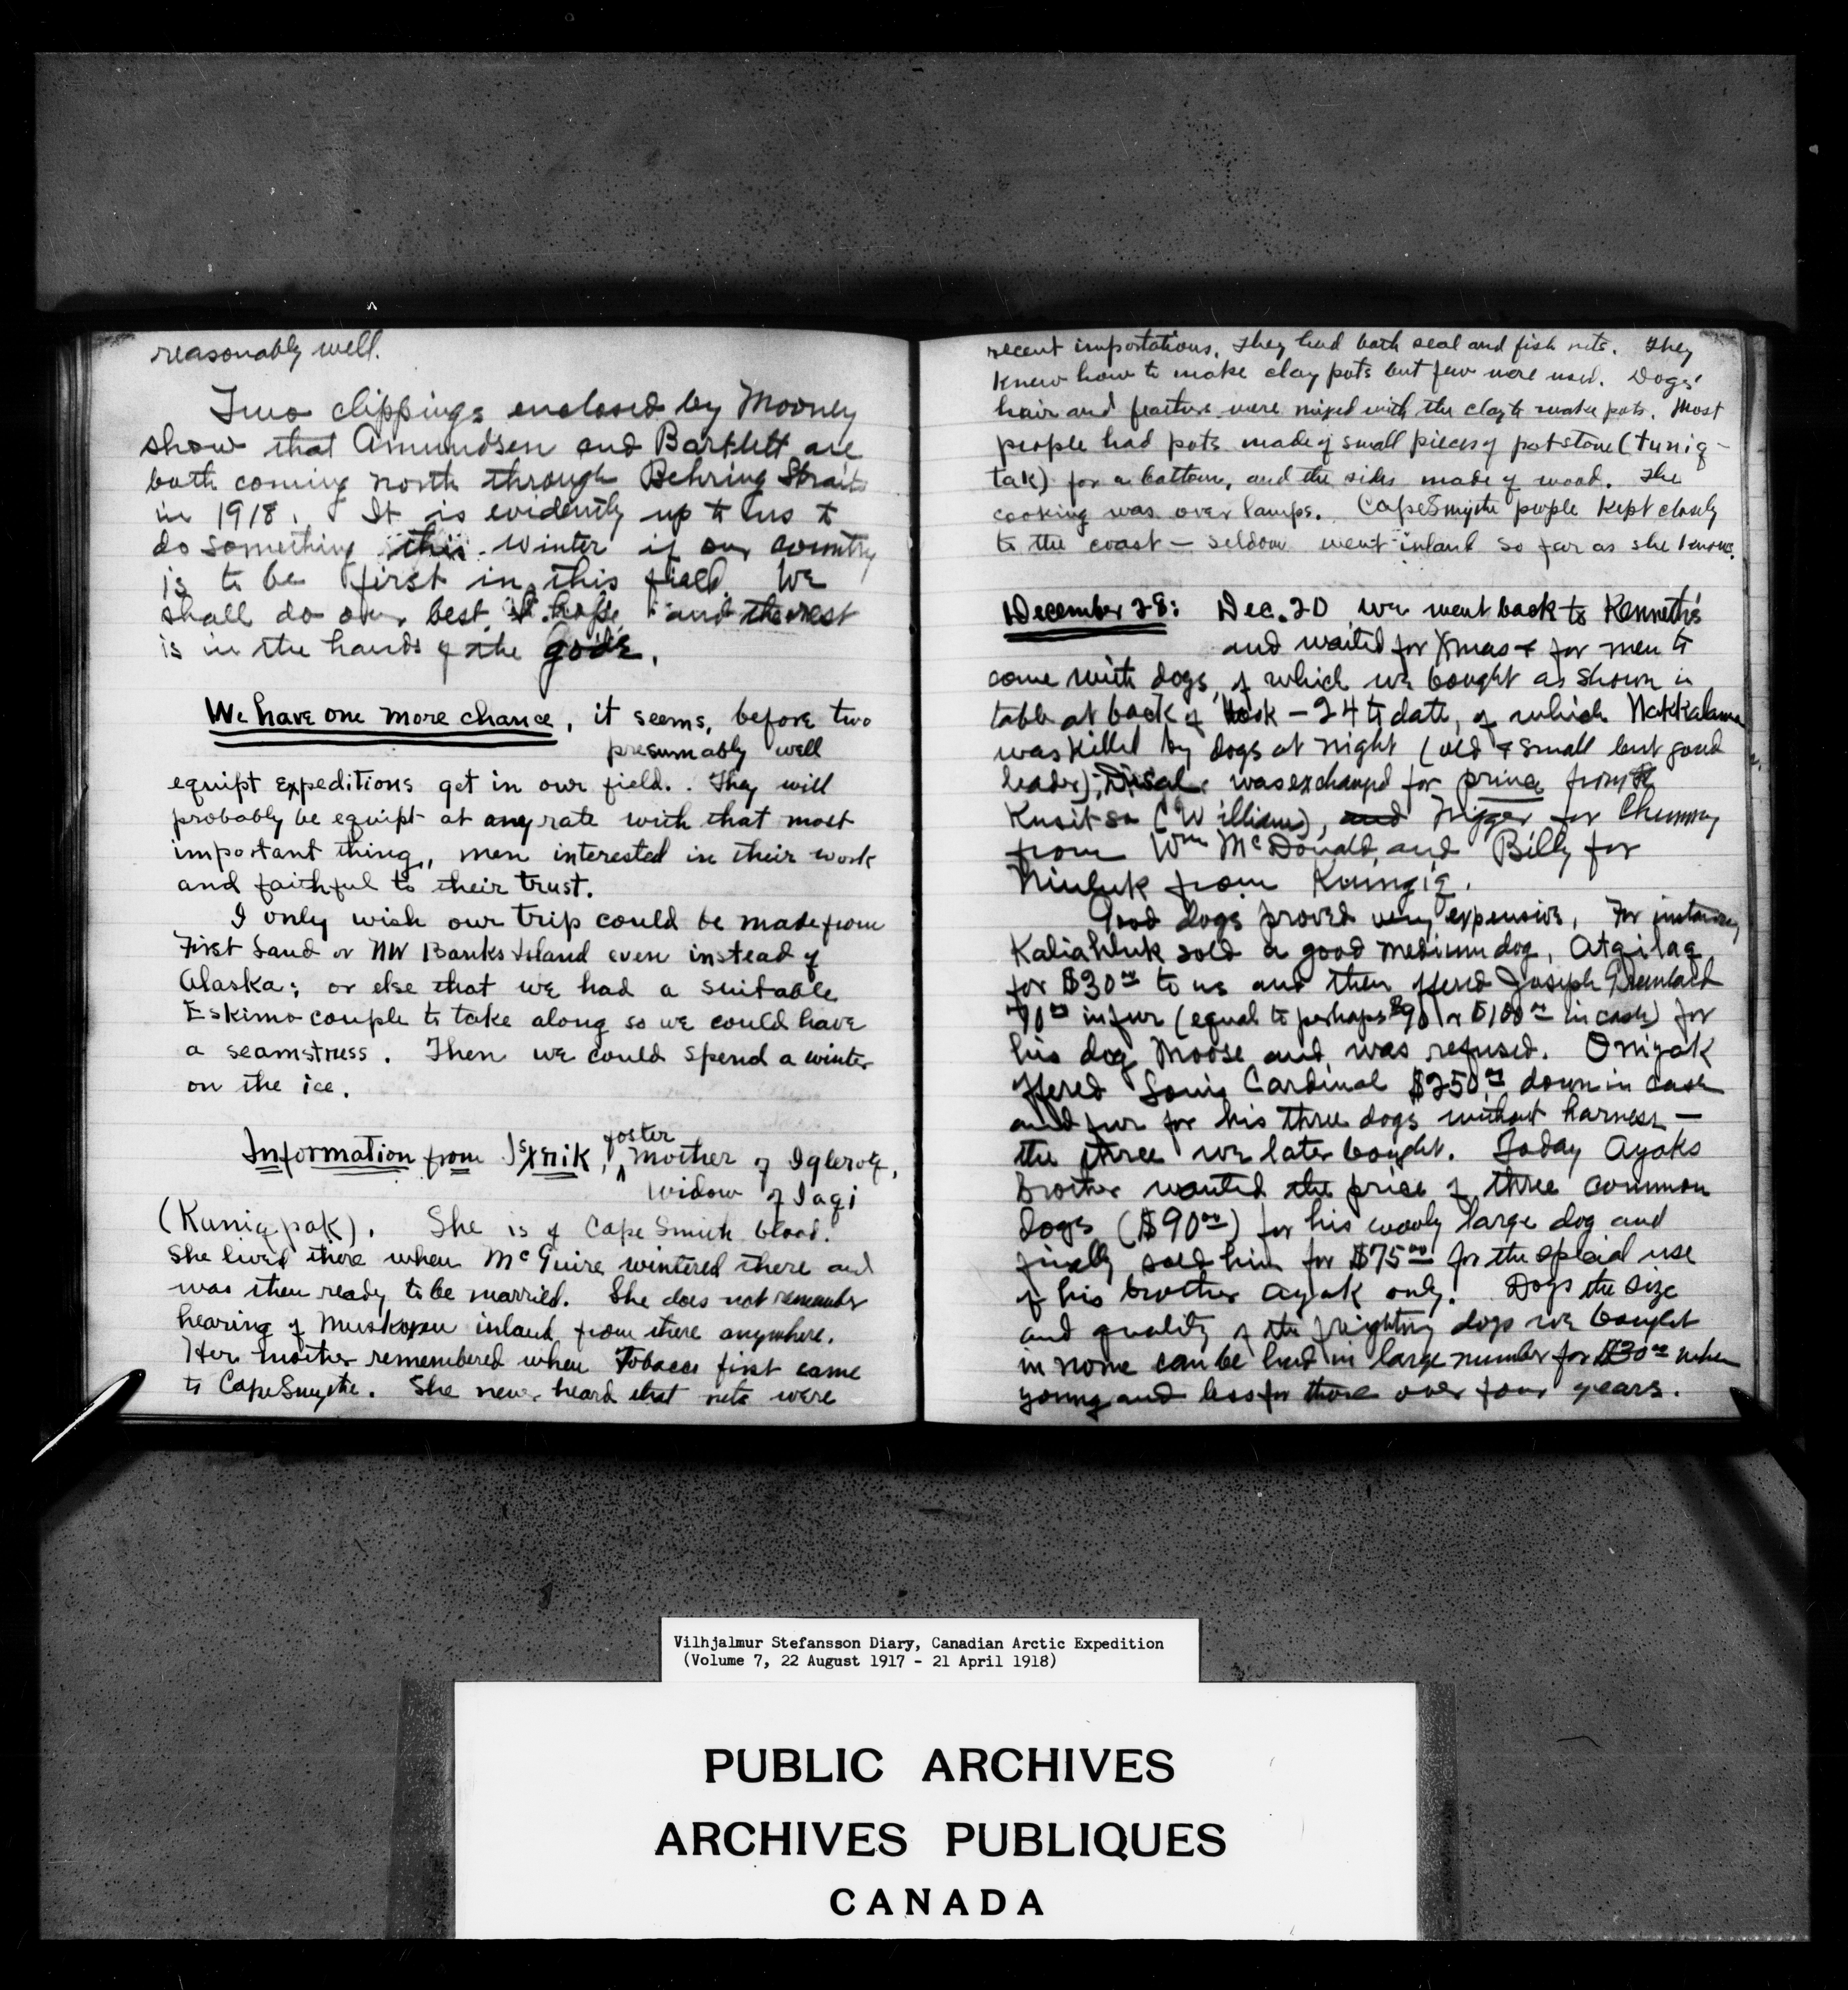 reasonably well.
Two clippings enclosed by Mooney
show that Amundsen and Bartlett are
both coming north through Behring Straits
in 1918. It is evidently up to us to
do something this winter if our country
is to be first in this field. We
shall do our best, I hope, and the rest
is in the hands of the gods.
We have one more chance, it seems, before two
presumably well
equipt expeditions get in our field. They will
probably be equipt at any rate with that most
important thing, men interested in their work
and faithful to their trust.
I only wish our trip could be made from
First Land or NW Banks Island even instead of
Alaska; or else that we had a suitable
Eskimo couple to take along so we could have
a seamstress. Then we could spend a winter
on the ice.
Information from foster mother of
widow of Iaqi
(Kuniqpak). She is of Cape Smith blood.
She lived there when McGuire wintered there and
was then ready to be married. She does not remember
hearing of Muskoxen inland from there anywhere.
Her mother remembered when Tobacco first came
to Cape Smythe. She never heard that nets were
recent importations. They had both seal and fish nets. They
knew how to make clay pots but few were used. Dogs'
hair and feathers were mixed with the clay to make pots. Most
people had pots made of small pieces of potstone (tuniq-
tak) for a bottom, and the sides made of wood. The
cooking was over lamps. Cape Smythe people kept closely
to the coast — seldom went inland so far as she knows.
December 28: Dec. 20 we went back to Kenneth's
and waited for Xmas + for men to
come with dogs, of which we bought as shown in
table at back of book — 24 to date, of which
was killed by dogs at night (old & small but good
leader); was exchanged for prince from
Kusitsa (Williams), and Nigger for Chummy
from Wm McDonald, and Billy for
Niuluk from Kungiq.
Good dogs proved very expensive. For instance,
Kaliahluk sold a good medium dog, Atqilaq
for $30.00 to us and then offered Joseph
70.00 in fur (equal to perhaps $90 or $100.00 in cash) for
his dog Moose and was refused. Oniyak
offered Louis Cardinal $250.00 down in cash
and fur for his three dogs without harness —
the three we later bought. Today Ayaks
brother wanted the price of three common
dogs ($90.00) for his wooly large dog and
finally sold him for $75.00 for the special use
of his brother Ayak only. Dogs the size
and quality of the freighting dogs we bought
in nome can be had in large number for $30.00 when
young and less for those over four years.
Vilhjalmur Stefansson Diary, Canadian Arctic Expedition
(Volume 7, 22 August 1917 - 21 April 1918)
PUBLIC ARCHIVES
ARCHIVES PUBLIQUES
CANADA